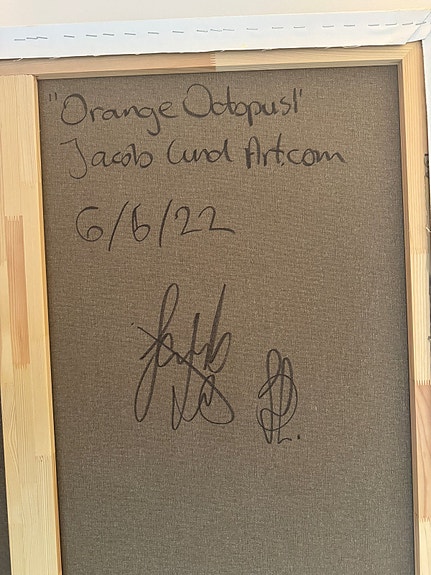 "Orange Octopus!"
Jacob Lund Art.com
6/6/22